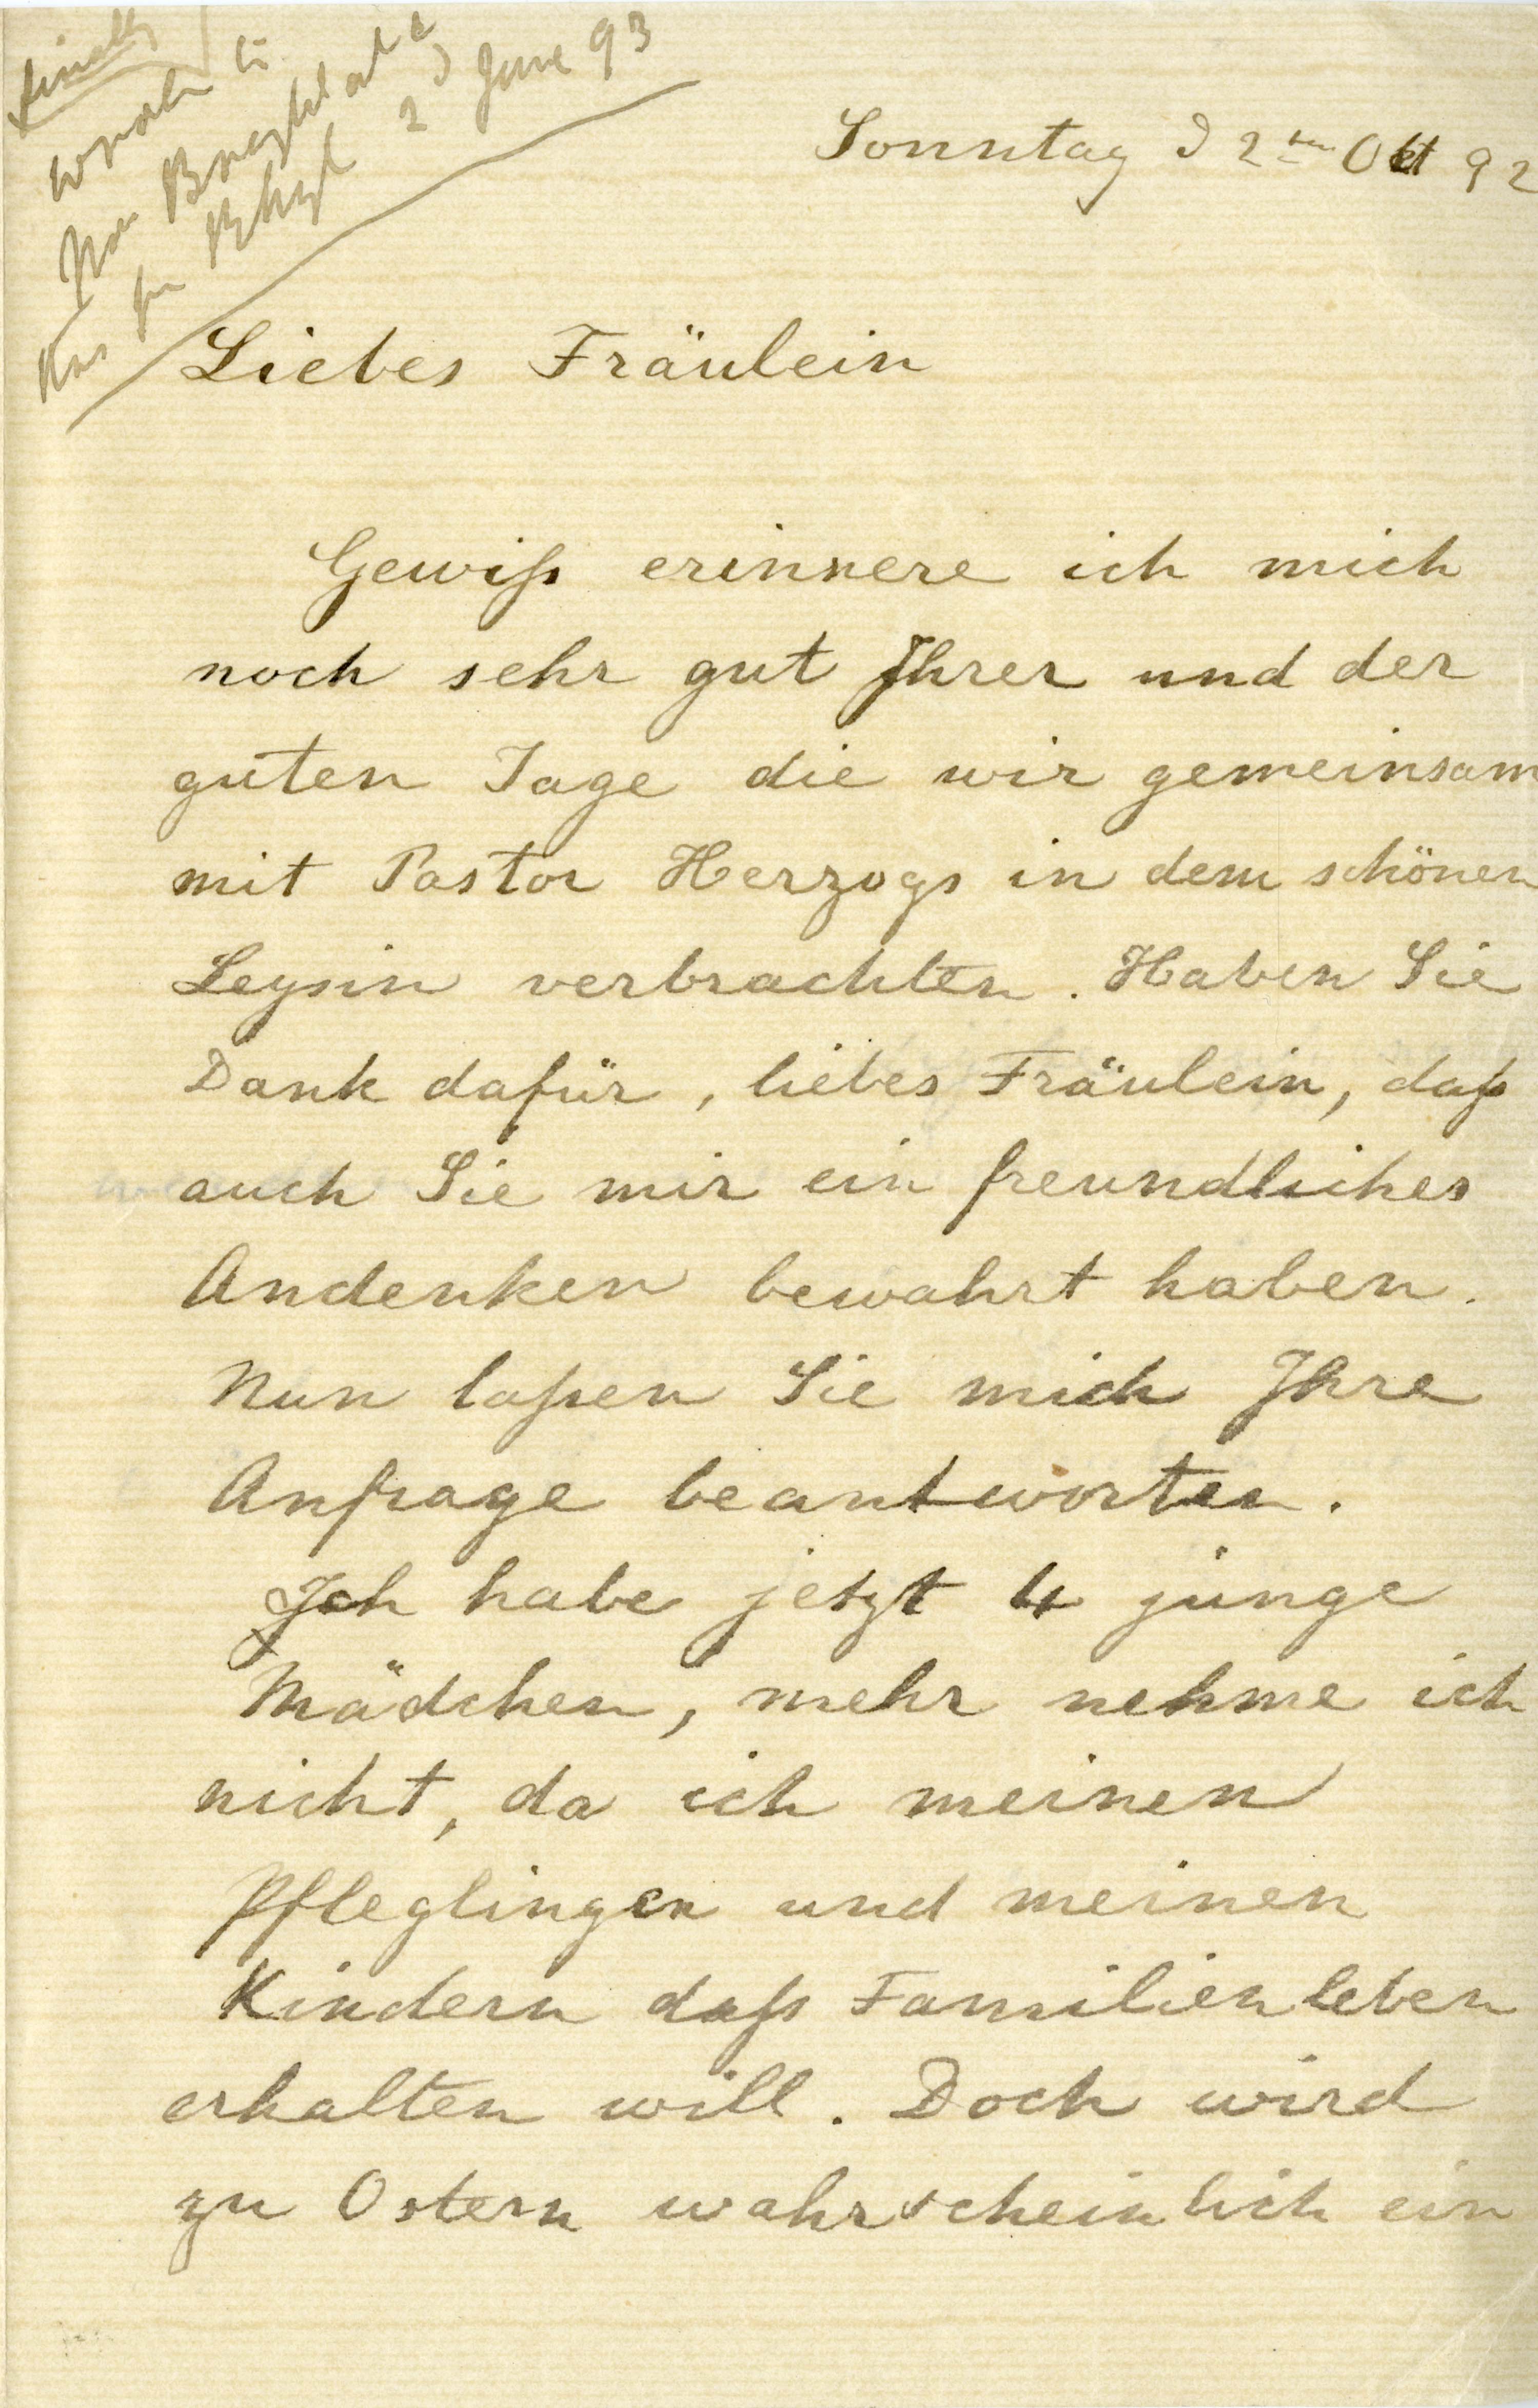 Finally
wrote to
2d June 93
Sonntag d 2ten Okt 92
Liebes Fräulein
Gewiß erinnere ich mich
noch sehr gut Ihrer und der
guten Tage die wir gemeinsam
mit Pastor Herzogs in dem schönen
Leysin verbrachten. Haben Sie
Dank dafür, liebes Fräulein, daß
auch Sie mir ein freundliches
Andenken bewahrt haben.
Nun laßen Sie mich Ihre
Anfrage beantworten.
Ich habe jetzt 4 junge
Mädchen, mehr nehme ich
nicht, da ich meinen
Pfleglingen und meinen
Kindern daß Familienleben
erhalten will. Doch wird
zu Ostern wahrscheinlich ein